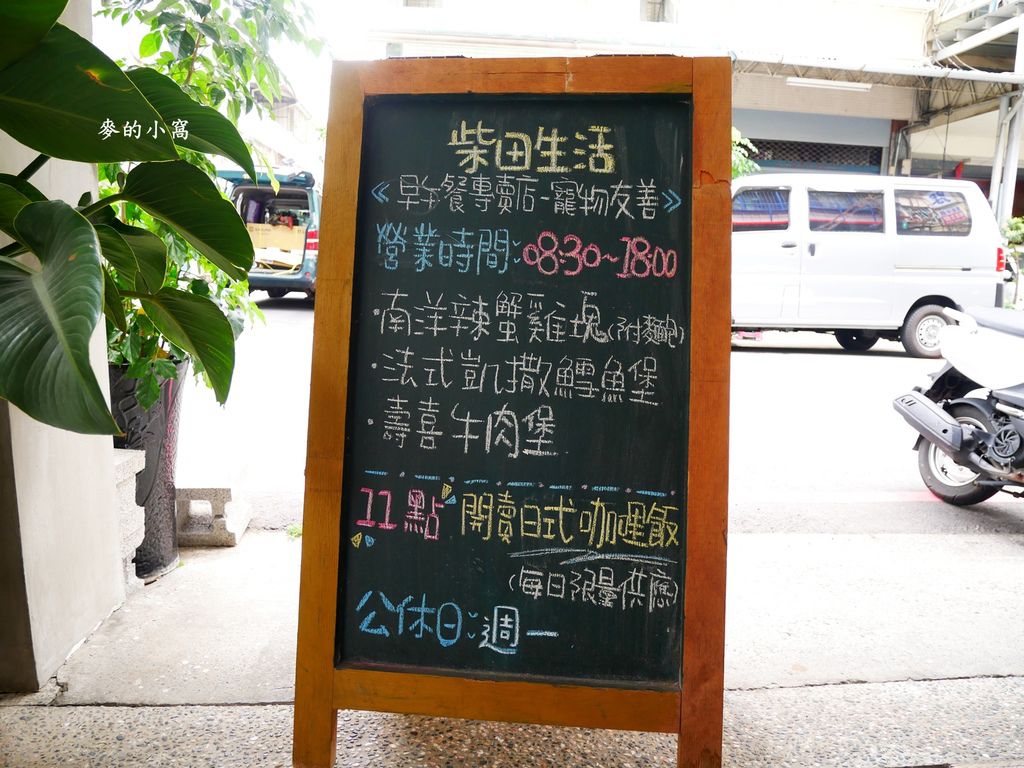 麥的小窩
柴田生活
《早午餐專賣店-寵物友善》
營業時間:08:30~18:00
·南洋辣蟹雞塊(附麵包)
·法式凱撒鱈魚堡
·壽喜牛肉堡
11點 開賣日式咖哩飯
(每日限量供應)
公休日:週一